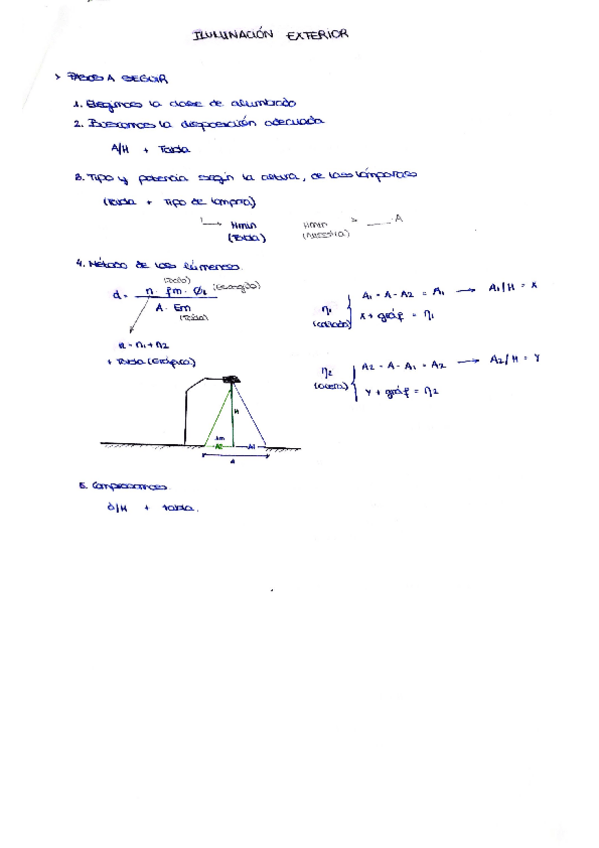 ILUMINACIÓN EXTERIOR
> PASOS A SEGUIR
1. Elegimos la clase de alumbrado
2. Buscamos la disposición adecuada
A/H + Tabla
3. Tipo y potencia según la altura, de las lámparas
(Tabla + Tipo de lámpara)
Hmin Hmin > A
(Tabla) (nuestra)
4. Método de los lúmenes
(Dato)
d = n · fm · Øl (Escogido)
A · Em
(Tabla)
n = η1 + η2
+ Tabla (Gráfica)
η1 A1 = A - A2 = A1 → A1/H = X
(calzada) X + gráf = η1
η2 A2 = A - A1 = A2 → A2/H = Y
(acera) Y + gráf = η2
H
A2 A1
A
5. Comprobamos
d/H + tabla.